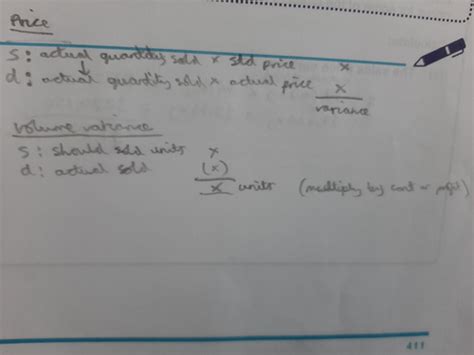 Price
S: actual quantity sold × std price x
d: actual quantity sold × actual price x
variance
Volume variance
S: should sold units x
d: actual sold (x)
x units (multiply by cont or profit)
411